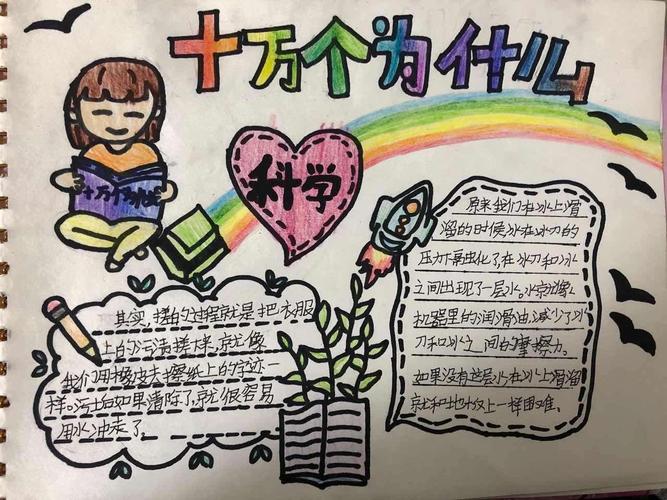 十万个为什么
十万个为什么
科学
其实,搓的过程就是把衣服
上的污渍搓下来,就像
我们用橡皮去擦纸上的字迹一
样。污垢如果清除了,就很容易
用水冲走了。
原来我们在冰上滑
溜的时候冰在冰刀的
压力下融化了,在冰刀和冰
之间出现了一层水。水就像
机器里的润滑油,减少了冰
刀和冰之间的摩擦力。
如果没有这层水在冰上滑溜
就和地板上一样困难。